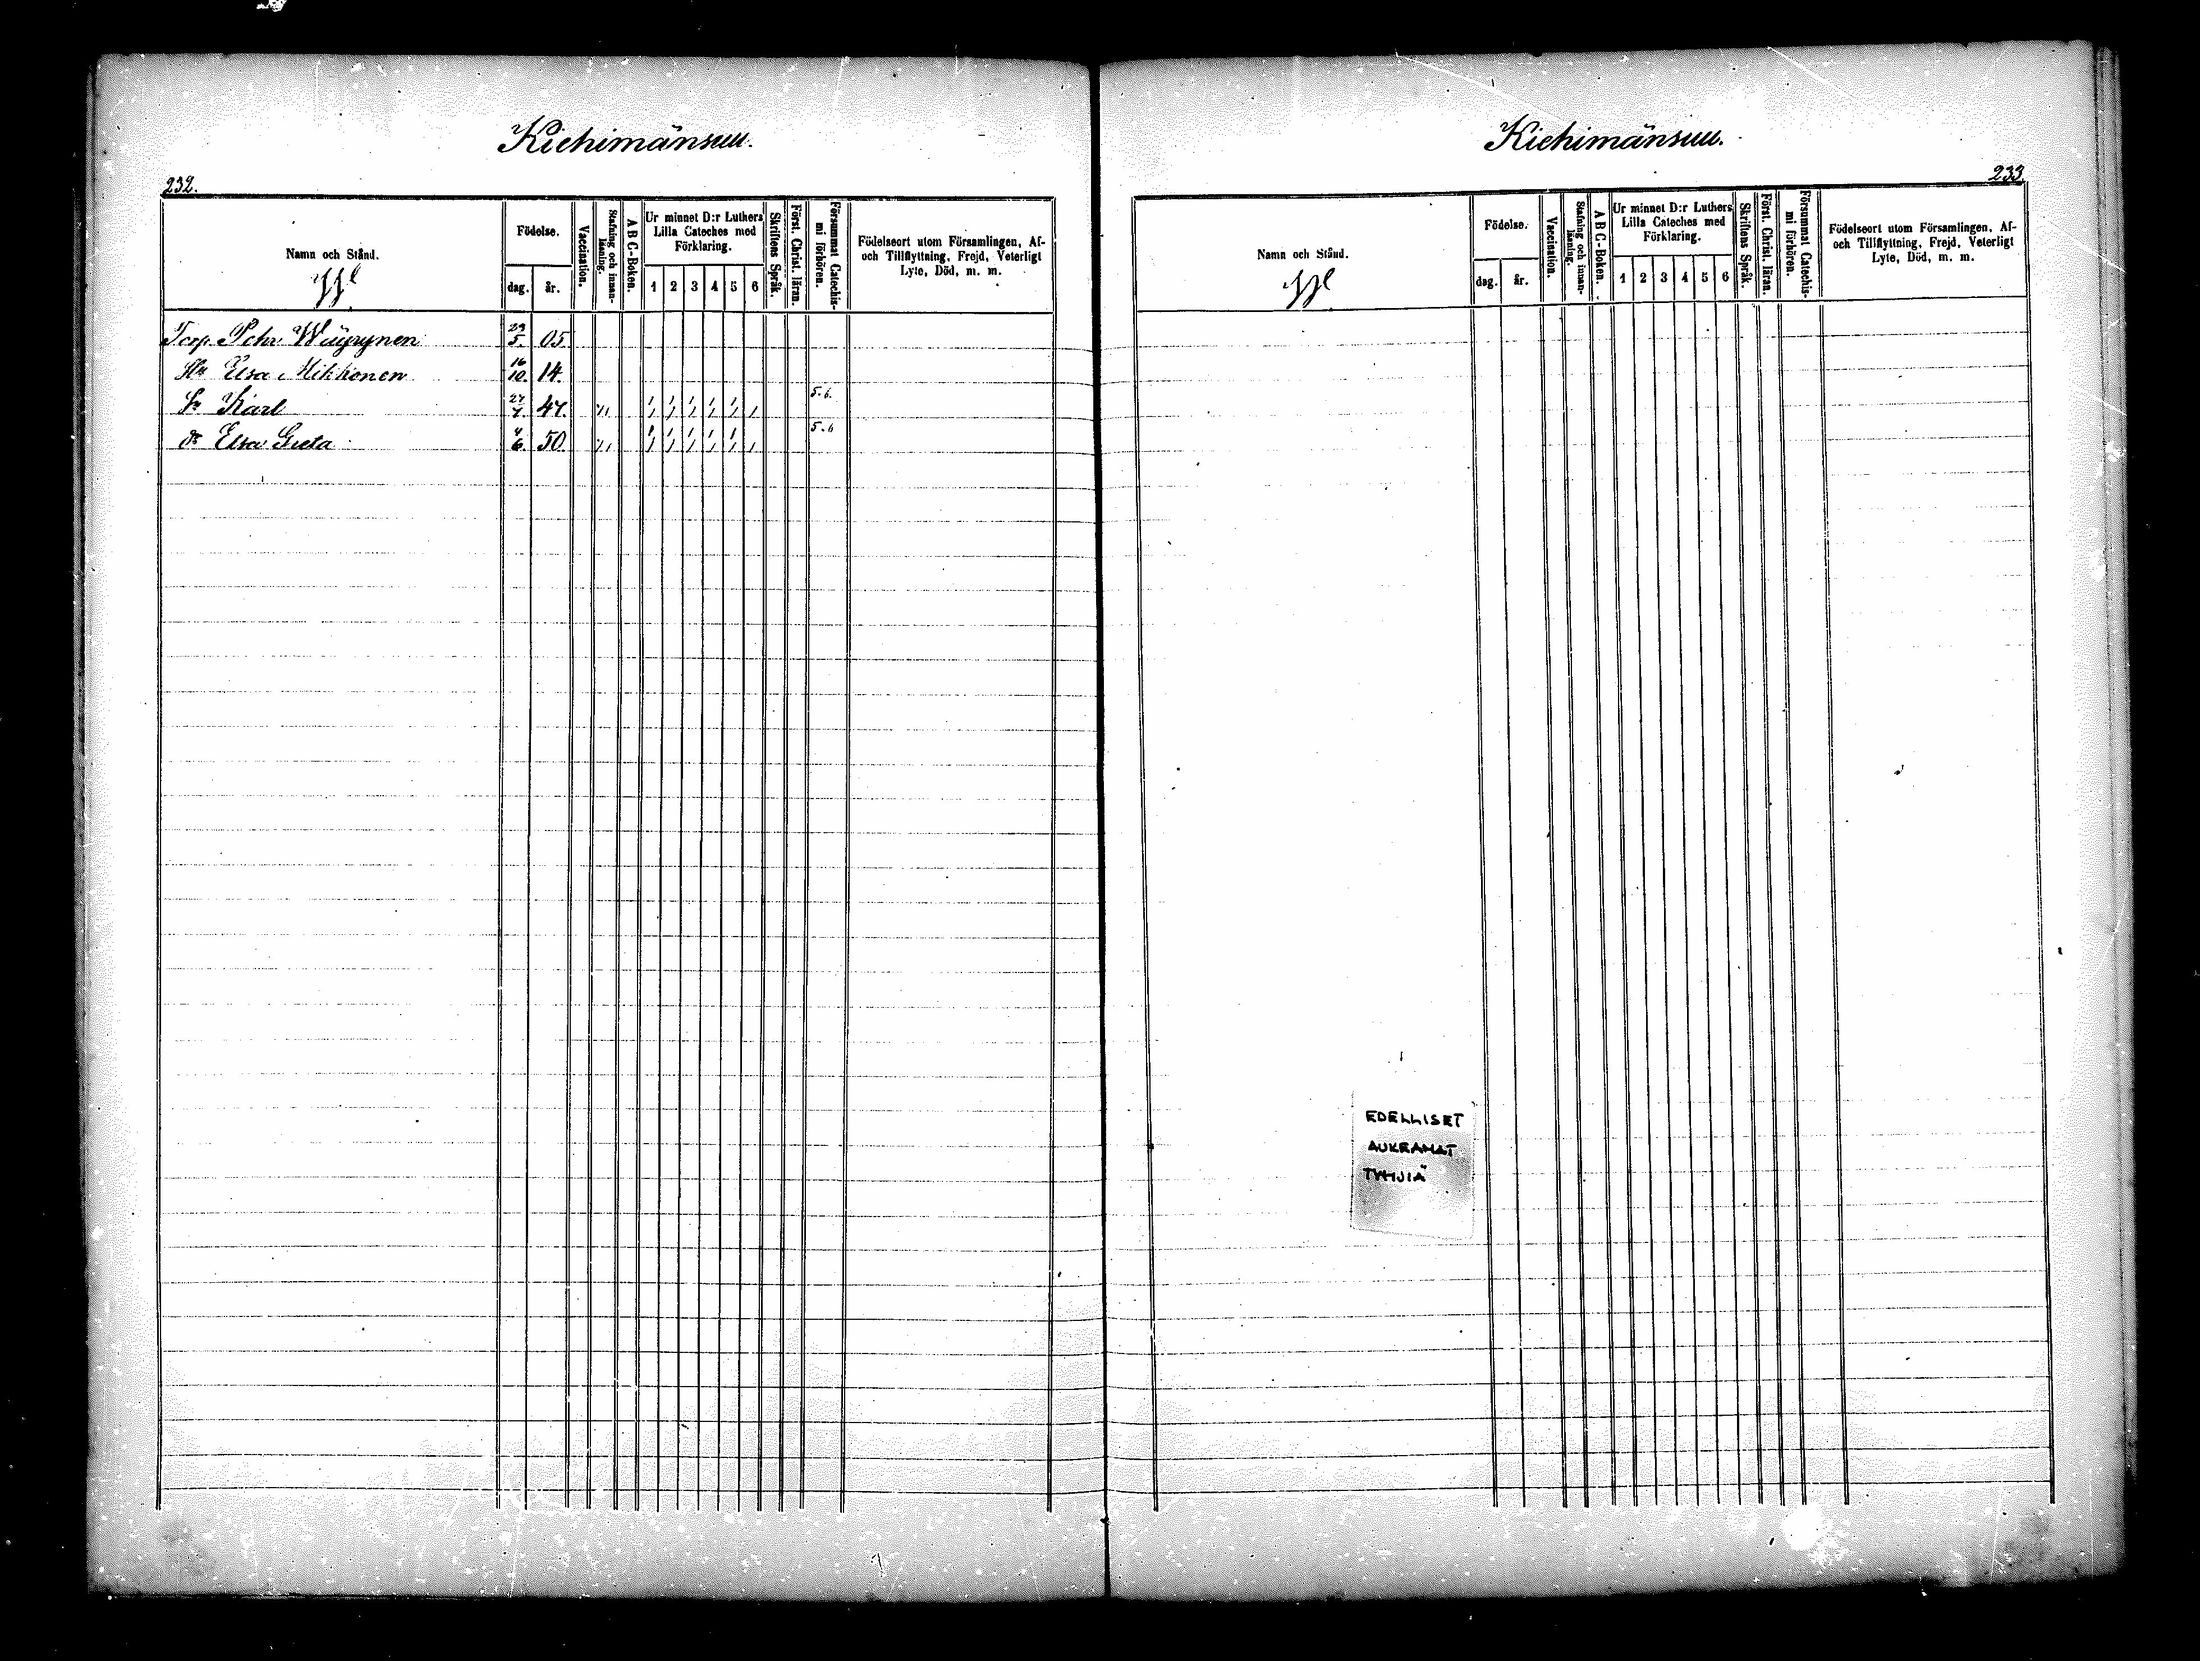 Kiehimänsuu.
232.
Namn och Stånd.
Födelse.
dag.
år.
Vaccination.
Stafning och innan-
läsning.
A B C-Boken.
Ur minnet D:r Luthers
Lilla Cateches med
Förklaring.
1 2 3 4 5 6
Skriftens Språk.
Först. Christ. läran.
Försummat Catechis-
mi förhören.
Födelseort utom Församlingen, Af-
och Tillflyttning, Frejd, Veterligt
Lyte, Död, m. m.
Torp. Pehr Wäyrynen 29/5. 05.
Hu Elsa Mikkonen 16/10. 14.
Sr Karl 47. 5.6.
dr Elsa Greta 4/6. 50. 5.6
Kiehimänsuu.
233.
Namn och Stånd.
Födelse.
dag.
år.
Vaccination.
Stafning och innan-
läsning.
A B C-Boken.
Ur minnet D:r Luthers
Lilla Cateches med
Förklaring.
1 2 3 4 5 6
Skriftens Språk.
Först. Christ. läran.
Försummat Catechis-
mi förhören.
Födelseort utom Församlingen, Af-
och Tillflyttning, Frejd, Veterligt
Lyte, Död, m. m.
EDELLISET
AUKEAMAT
TYHJIÄ